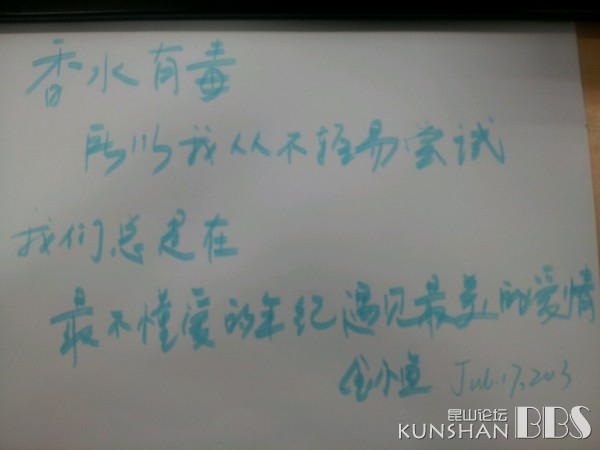 香水有毒
所以我从不轻易尝试
我们总是在
最不懂爱的年纪遇见最美的爱情
金小鱼 Jul.17,203
昆山论坛
KUNSHAN BBS